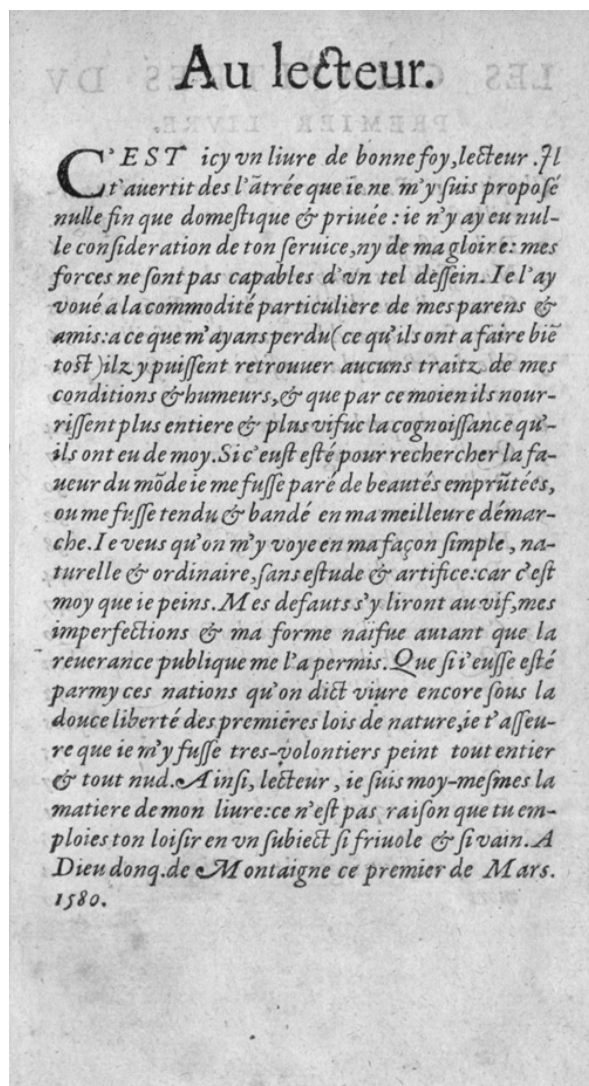 Au lecteur.
C'EST icy vn liure de bonne foy, lecteur. Il
t'auertit des l'ãtrée que ie ne m'y suis proposé
nulle fin que domestique & priuée : ie n'y ay eu nul-
le consideration de ton seruice, ny de ma gloire: mes
forces ne sont pas capables d'vn tel dessein. Ie l'ay
voué a la commodité particuliere de mes parens &
amis: a ce que m'ayans perdu (ce qu'ils ont a faire biẽ
tost) ilz y puissent retrouuer aucuns traitz de mes
conditions & humeurs, & que par ce moien ils nour-
rissent plus entiere & plus vifue la cognoissance qu'-
ils ont eu de moy. Si c'eust esté pour rechercher la fa-
ueur du mõde ie me fusse paré de beautés emprũtées,
ou me fusse tendu & bandé en ma meilleure démar-
che. Ie veus qu'on m'y voye en ma façon simple, na-
turelle & ordinaire, sans estude & artifice: car c'est
moy que ie peins. Mes defauts s'y liront au vif, mes
imperfections & ma forme naifue autant que la
reuerance publique me l'a permis. Que si i'eusse esté
parmy ces nations qu'on dict viure encore sous la
douce liberté des premiéres lois de nature, ie t'asseu-
re que ie m'y fusse tres-volontiers peint tout entier
& tout nud. Ainsi, lecteur, ie suis moy-mesmes la
matiere de mon liure: ce n'est pas raison que tu em-
ploies ton loisir en vn subiect si friuole & si vain. A
Dieu donq. de Montaigne ce premier de Mars.
1580.